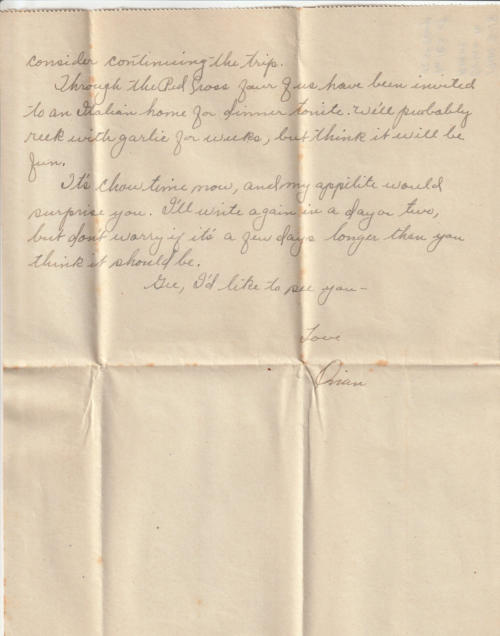 consider continuing the trip.
Through the Red Cross four of us have been invited
to an Italian home for dinner tonite. We'll probably
reek with garlic for weeks, but think it will be
fun.
It's chow time now, and my appitite would
surprise you. I'll write again in a day or two,
but don't worry if it's a few days longer than you
think it should be.
Gee, I'd like to see you—
Love